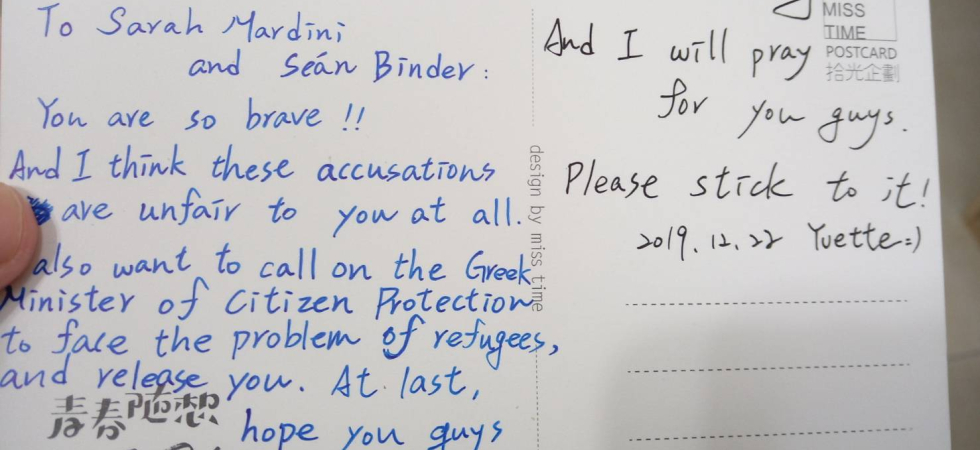 To Sarah Mardini
and Seán Binder :
You are so brave !!
And I think these accusations
are unfair to you at all.
also want to call on the Greek
Minister of Citizen Protection
to face the problem of refugees,
and release you. At last,
青春隨想
hope you guys
design by miss time
MISS
TIME
POSTCARD
拾光企劃
And I will pray
for you guys.
Please stick to it!
2019.12.22 Yvette:)